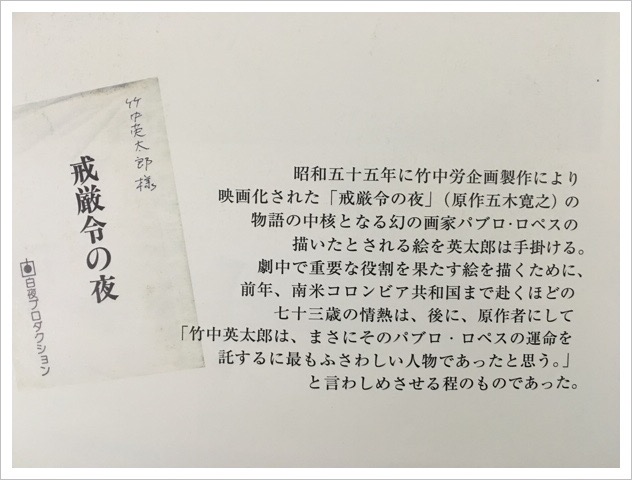 竹中英太郎様
戒厳令の夜
白夜プロダクション
昭和五十五年に竹中労企画製作により
映画化された「戒厳令の夜」（原作五木寛之）の
物語の中核となる幻の画家パブロ・ロペスの
描いたとされる絵を英太郎は手掛ける。
劇中で重要な役割を果たす絵を描くために、
前年、南米コロンビア共和国まで赴くほどの
七十三歳の情熱は、後に、原作者にして
「竹中英太郎は、まさにそのパブロ・ロペスの運命を
託するに最もふさわしい人物であったと思う。」
と言わしめさせる程のものであった。